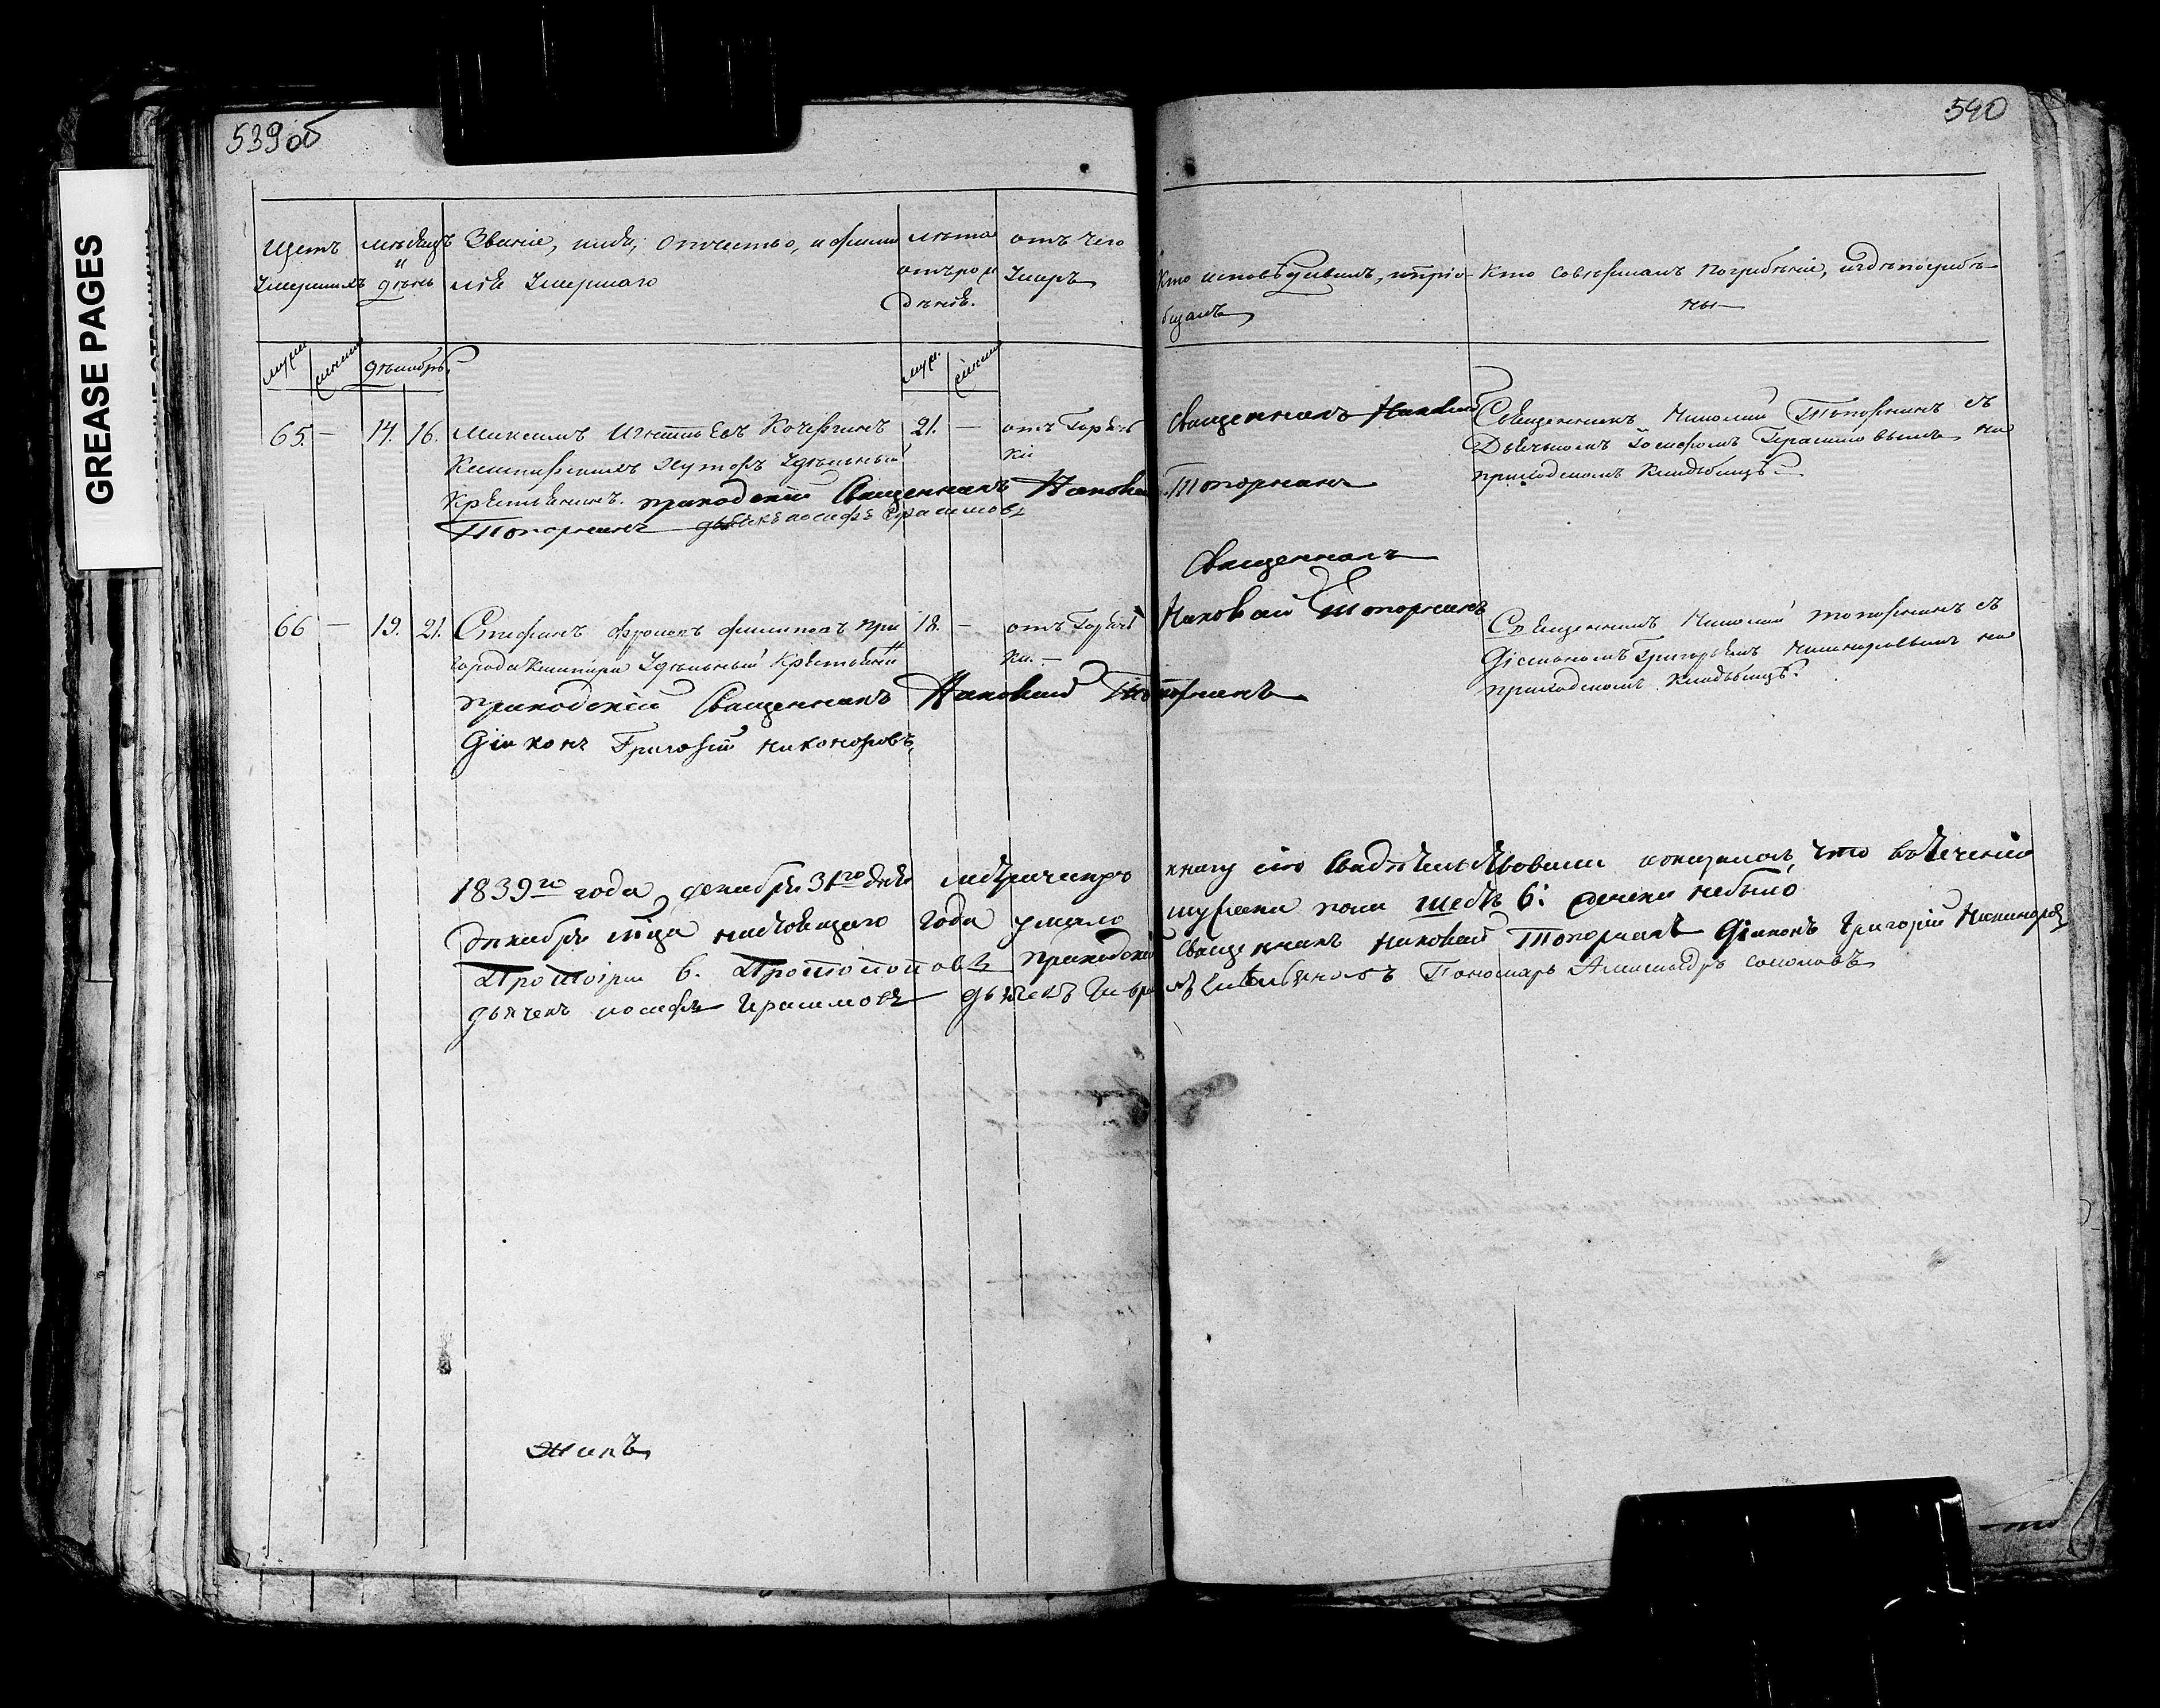 GREASE PAGES
539об
540
Щетъ
умершихъ
мѣсяцъ
и
день
Званіе, имя, Отчество, и фами
лія Умершаго
лѣта
отъ рож
денія.
отъ чего
умеръ
Кто исповѣдывалъ, и пріо-
бщалъ
Кто совершалъ погребеніе, и гдѣ погребе-
ны
муж
женск
декабрь
муж.
женск
65. — 14. 16. Максимъ Игнатьевъ Кочергинъ 21. — отъ Горяч
ки
хуторъ Удѣльный
Крестьянинъ. приходскій Священникъ Николай
Топорнинъ дьячекъ иосифъ Герасимовъ
Священникъ Николай
Топорнинъ
Священникъ Николай Топорнинъ съ
Дьячкомъ Іосифомъ Герасимовымъ на
приходскомъ Кладбищѣ
66 — 19. 21. Стефанъ филиповъ При 18. — отъ Горяч
города Удѣльный Крестьянинъ ки. —
приходскій Священникъ Николай Топорнинъ
Діаконъ Григорій никоноровъ
Священникъ
Николай Топорнинъ
Священникъ Николай топорнинъ съ
Діакономъ Григорьемъ Никаноровымъ на
приходскомъ Кладбищѣ.
1839го года декабря 31го дня метрическую книгу сію Свидѣтельствовали и оказалось, что въ теченіи
Декабря м̃ца настоящаго года умерло мужска пола шесть 6: женска небыло
Протоіерей В. Протопоповъ приходскій Священникъ Николай Топорнинъ Діаконъ Григорій Никаноровъ
дьячекъ иосифъ Герасимовъ дьячекъ Пономарь Александръ соколовъ